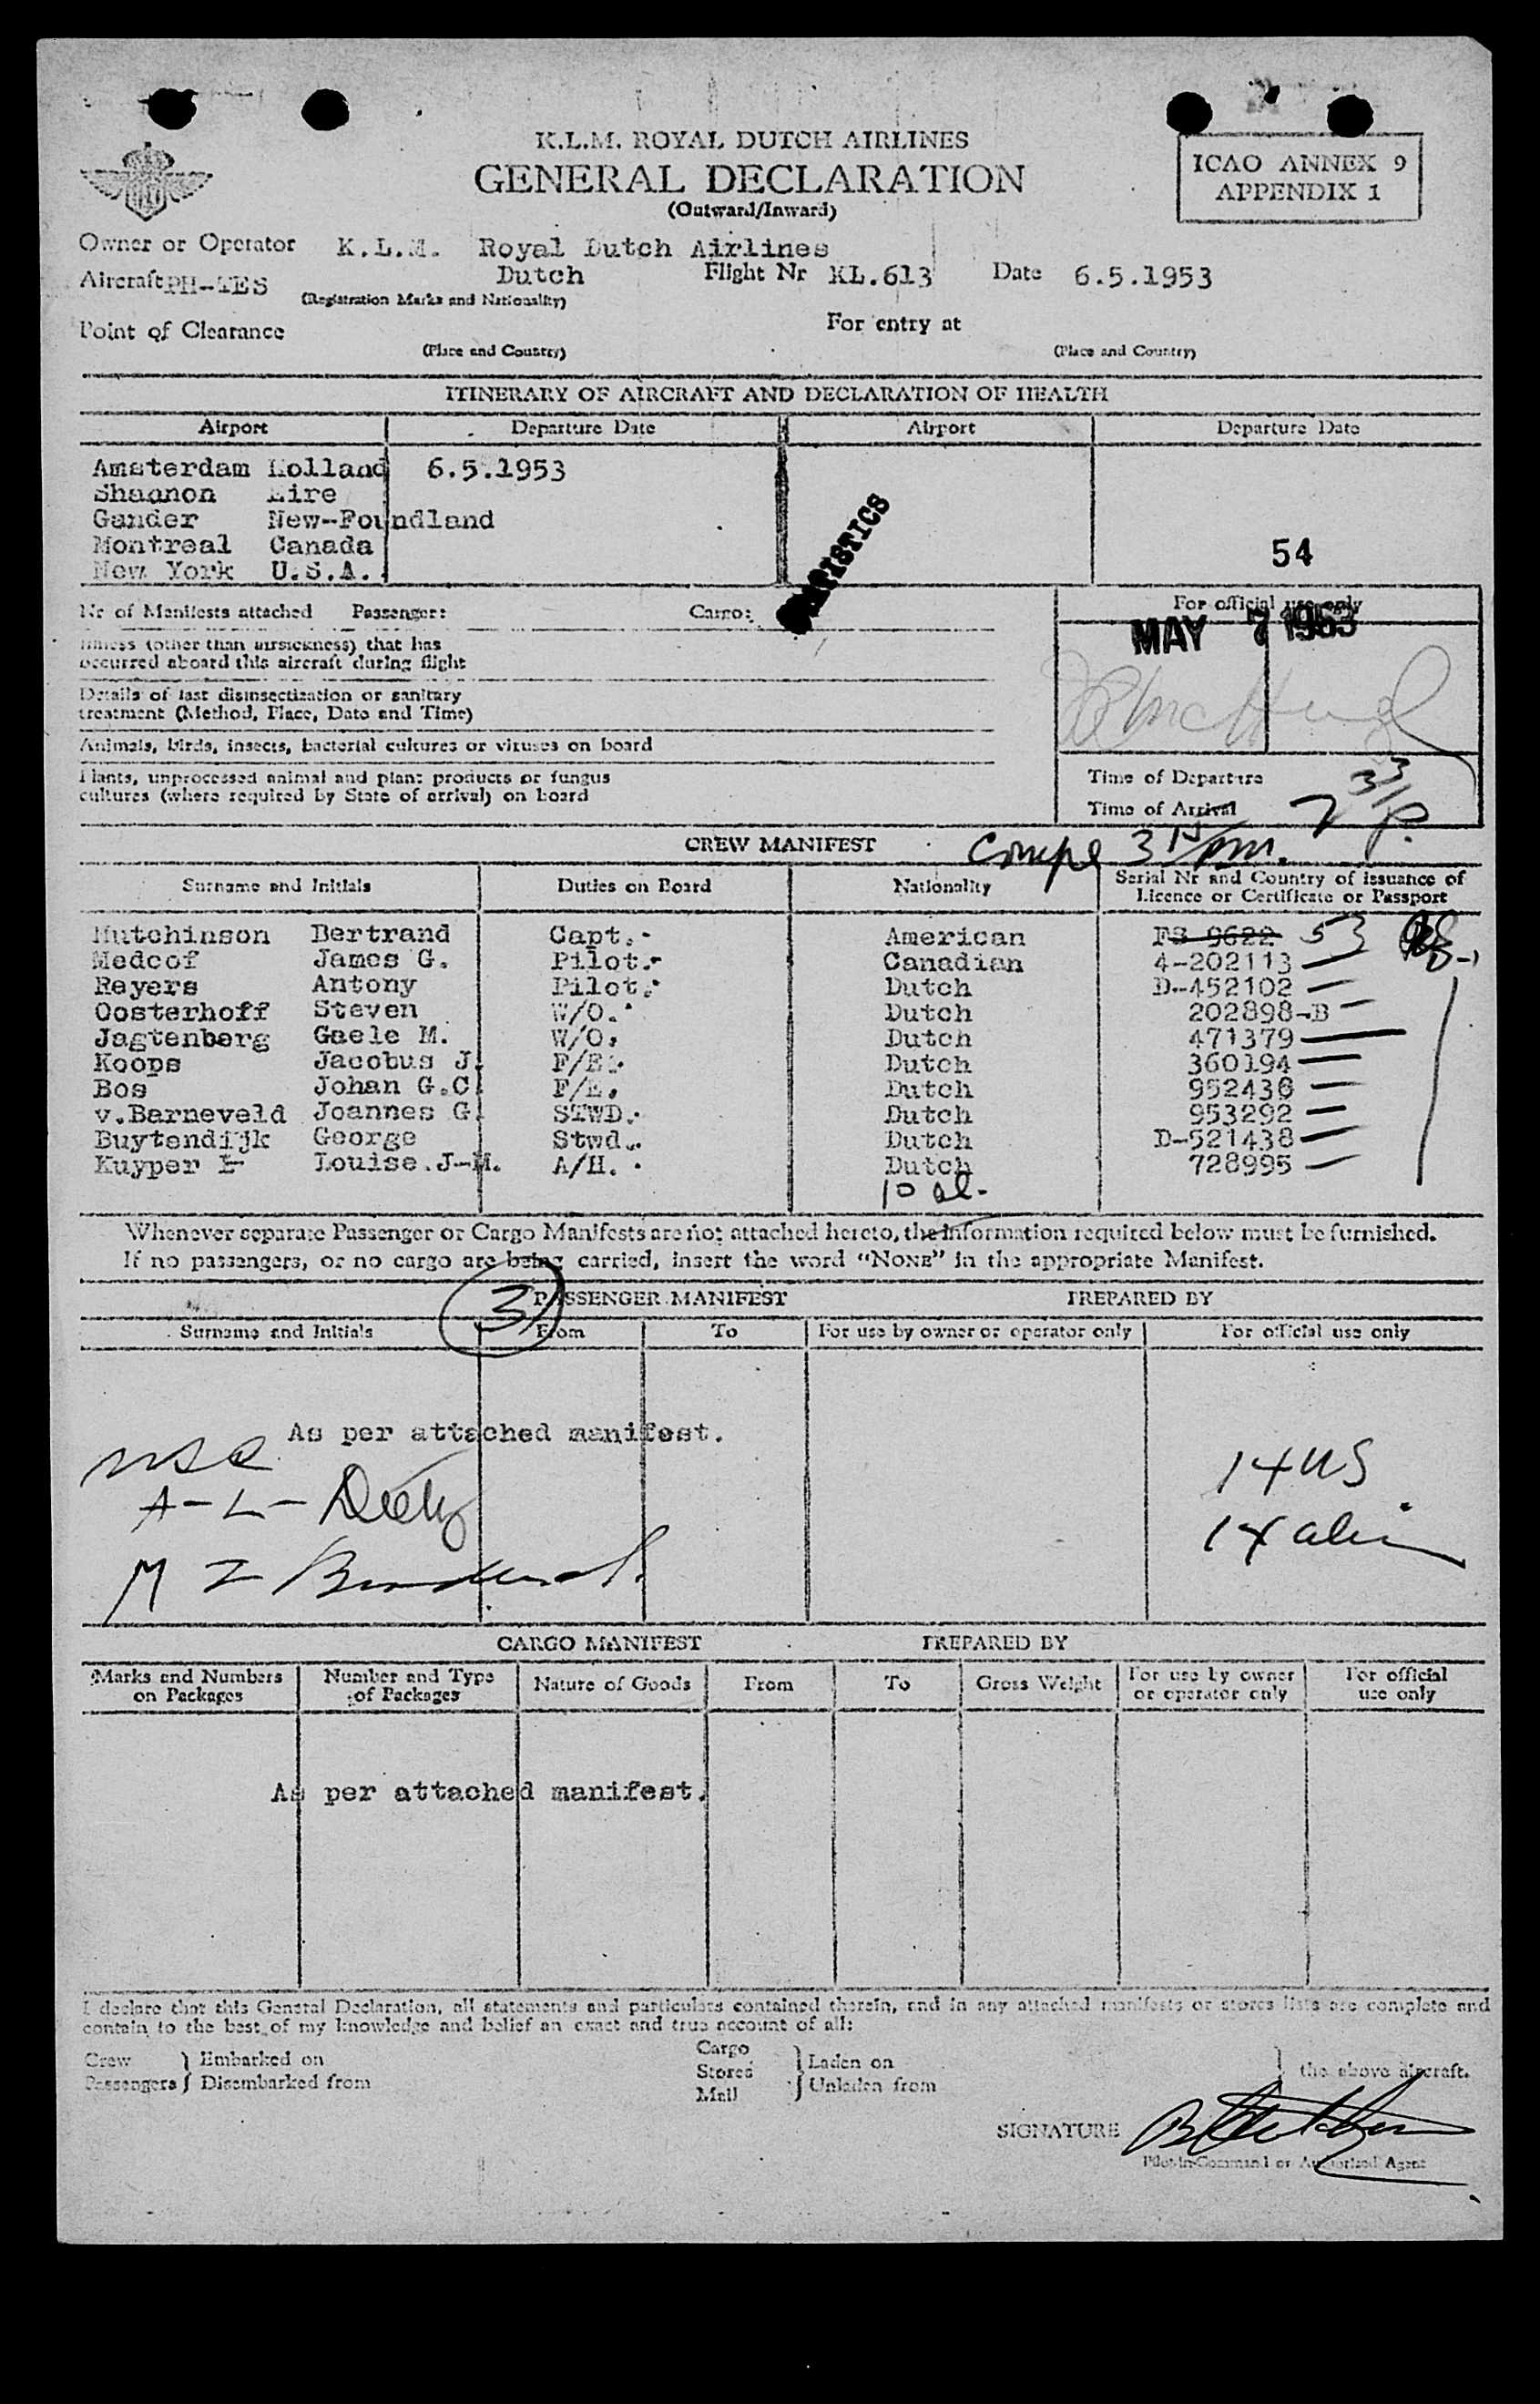 K.L.M. ROYAL DUTCH AIRLINES
GENERAL DECLARATION
(Outward/Inward)
ICAO ANNEX 9
APPENDIX 1
Owner or Operator K.L.M. Royal Dutch Airlines
Aircraft PH-TES Dutch Flight Nr KL.613 Date 6.5.1953
(Registration Marks and Nationality)
Point of Clearance For entry at
(Place and Country) (Place and Country)
ITINERARY OF AIRCRAFT AND DECLARATION OF HEALTH
Airport Departure Date Airport Departure Date
Amsterdam Holland 6.5.1953
Shannon Eire
Gander New-Foundland
Montreal Canada
New York U.S.A.
54
Nr of Manifests attached Passenger: Cargo:
STATISTICS
For official use only
MAY 7 1953
Illness (other than airsickness) that has
occurred aboard this aircraft during flight
Details of last disinsectization or sanitary
treatment (Method, Place, Date and Time)
Animals, birds, insects, bacterial cultures or viruses on board
Plants, unprocessed animal and plant products or fungus
cultures (where required by State of arrival) on board
Time of Departure
Time of Arrival 2 33/P.
CREW MANIFEST
Surname and Initials Duties on Board Nationality Serial Nr and Country of issuance of
Licence or Certificate or Passport
Hutchinson Bertrand Capt. American FS 9622 53
Medcof James G. Pilot. Canadian 4-202113
Reyers Antony Pilot. Dutch D-452102
Oosterhoff Steven W/O. Dutch 202898-B
Jagtenberg Gaele M. W/O. Dutch 471379
Koops Jacobus J. F/E. Dutch 360194
Bos Johan G.C. F/E. Dutch 952436
v.Barneveld Joannes G. STWD. Dutch 953292
Buytendijk George Stwd. Dutch D-521438
Kuyper Louise.J-M. A/H. Dutch 728995
10 al-
Whenever separate Passenger or Cargo Manifests are not attached hereto, the information required below must be furnished.
If no passengers, or no cargo are being carried, insert the word “NONE” in the appropriate Manifest.
3
PASSENGER MANIFEST PREPARED BY
Surname and Initials From To For use by owner or operator only For official use only
As per attached manifest.
A-L-
14 US
14 alien
M I
CARGO MANIFEST PREPARED BY
Marks and Numbers on Packages Number and Type of Packages Nature of Goods From To Gross Weight For use by owner or operator only For official use only
As per attached manifest.
I declare that this General Declaration, all statements and particulars contained therein, and in any attached manifests or stores lists are complete and
contain to the best of my knowledge and belief an exact and true account of all:
Crew } Embarked on Cargo } Laden on
Passengers } Disembarked from Stores } Unladen from the above aircraft.
Mail
SIGNATURE
Pilot-in-Command or Authorized Agent